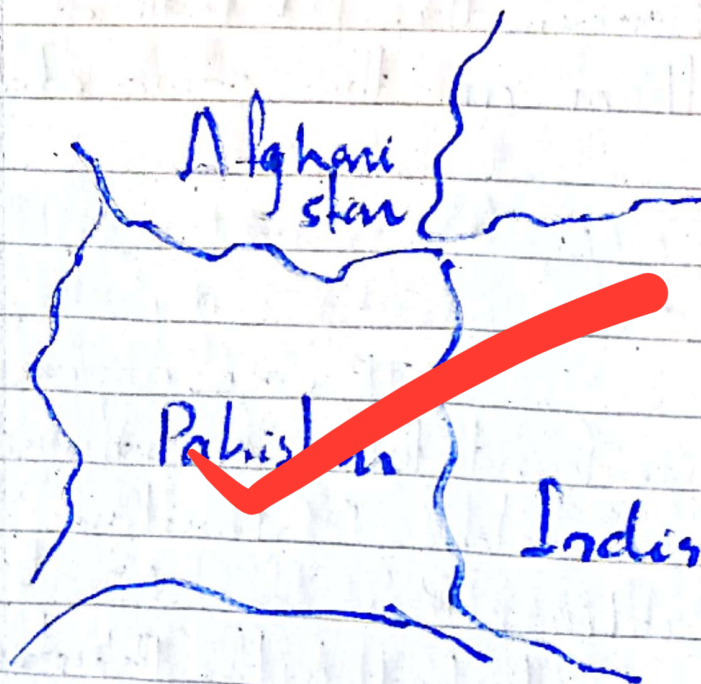 Afghani
stan
Pakistan
India